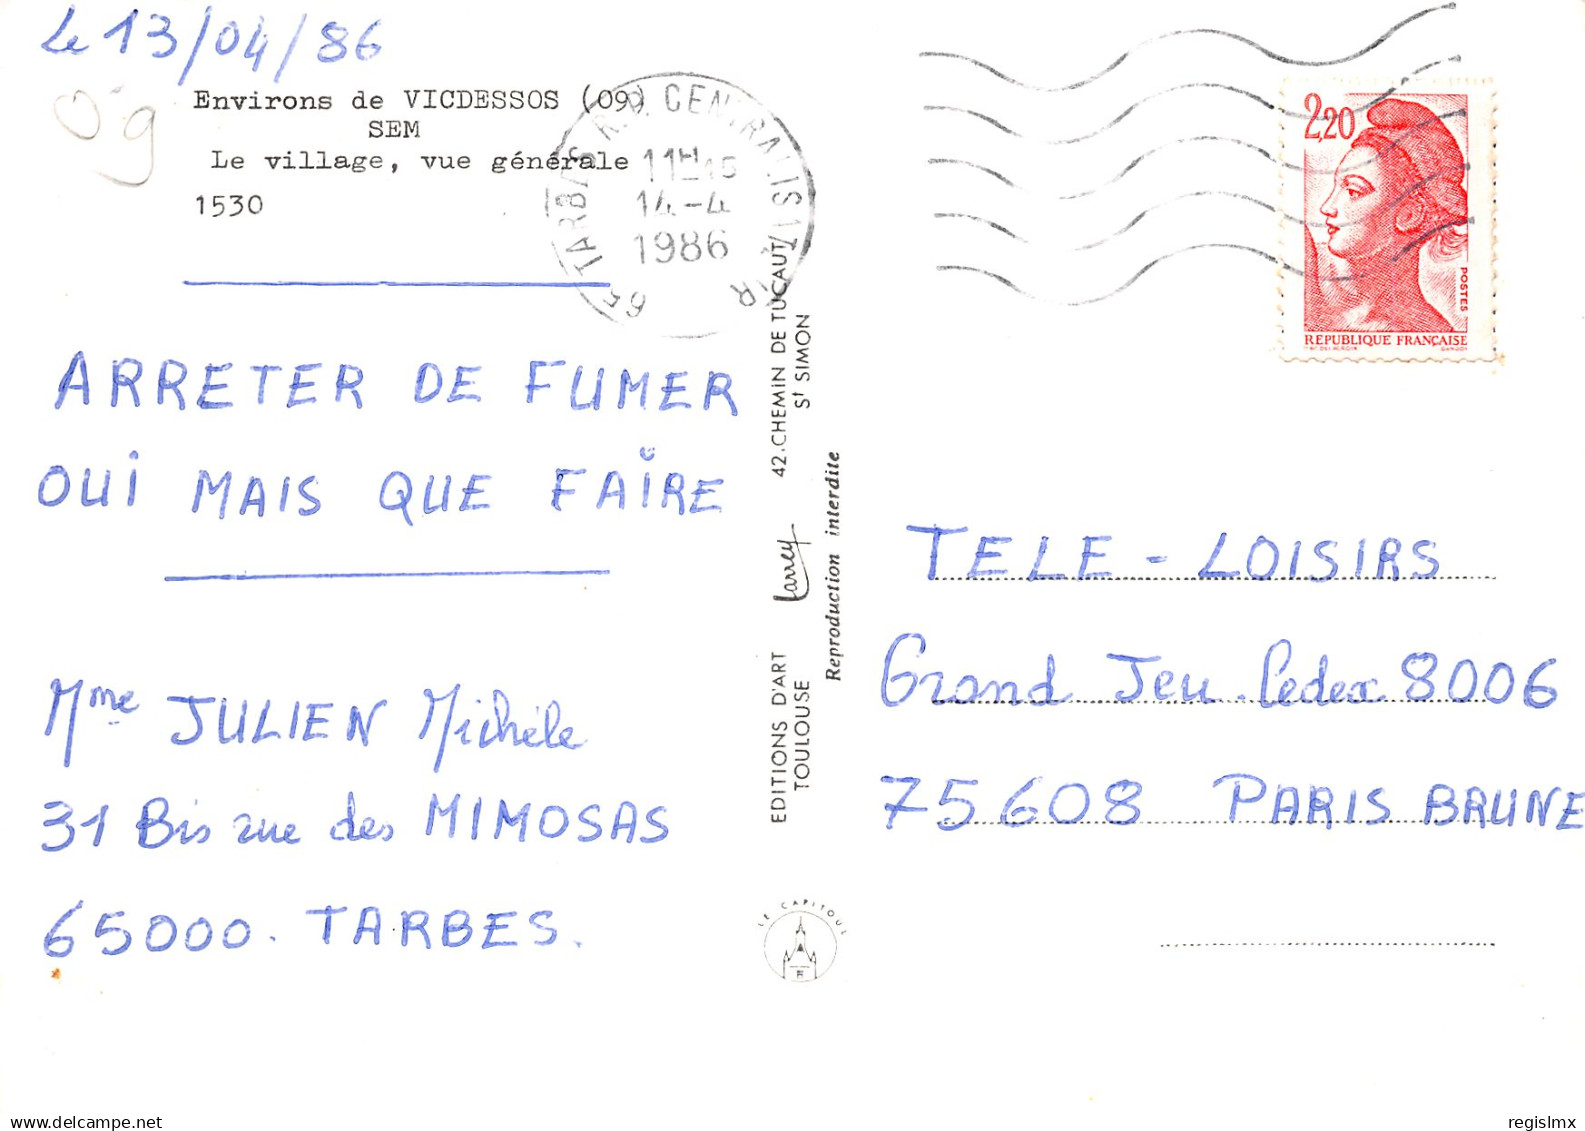 Le 13/04/86
09
Environs de VICDESSOS (09)
SEM
Le village, vue générale
1530
ARRETER DE FUMER
OUI MAIS QUE FAIRE
Mme JULIEN Michèle
31 Bis rue des MIMOSAS
65000. TARBES.
65 TARBES R.P. CENTRALISATR
14-4
1986
EDITIONS D'ART Larrey 42.CHEMIN DE TUCAUT
TOULOUSE St SIMON
Reproduction interdite
LE CAPITOUL
2,20
POSTES
REPUBLIQUE FRANÇAISE
GANDON
TELE - LOISIRS
Grand Jeu. Cedex 8006
75608 PARIS BRUNE
regislmx